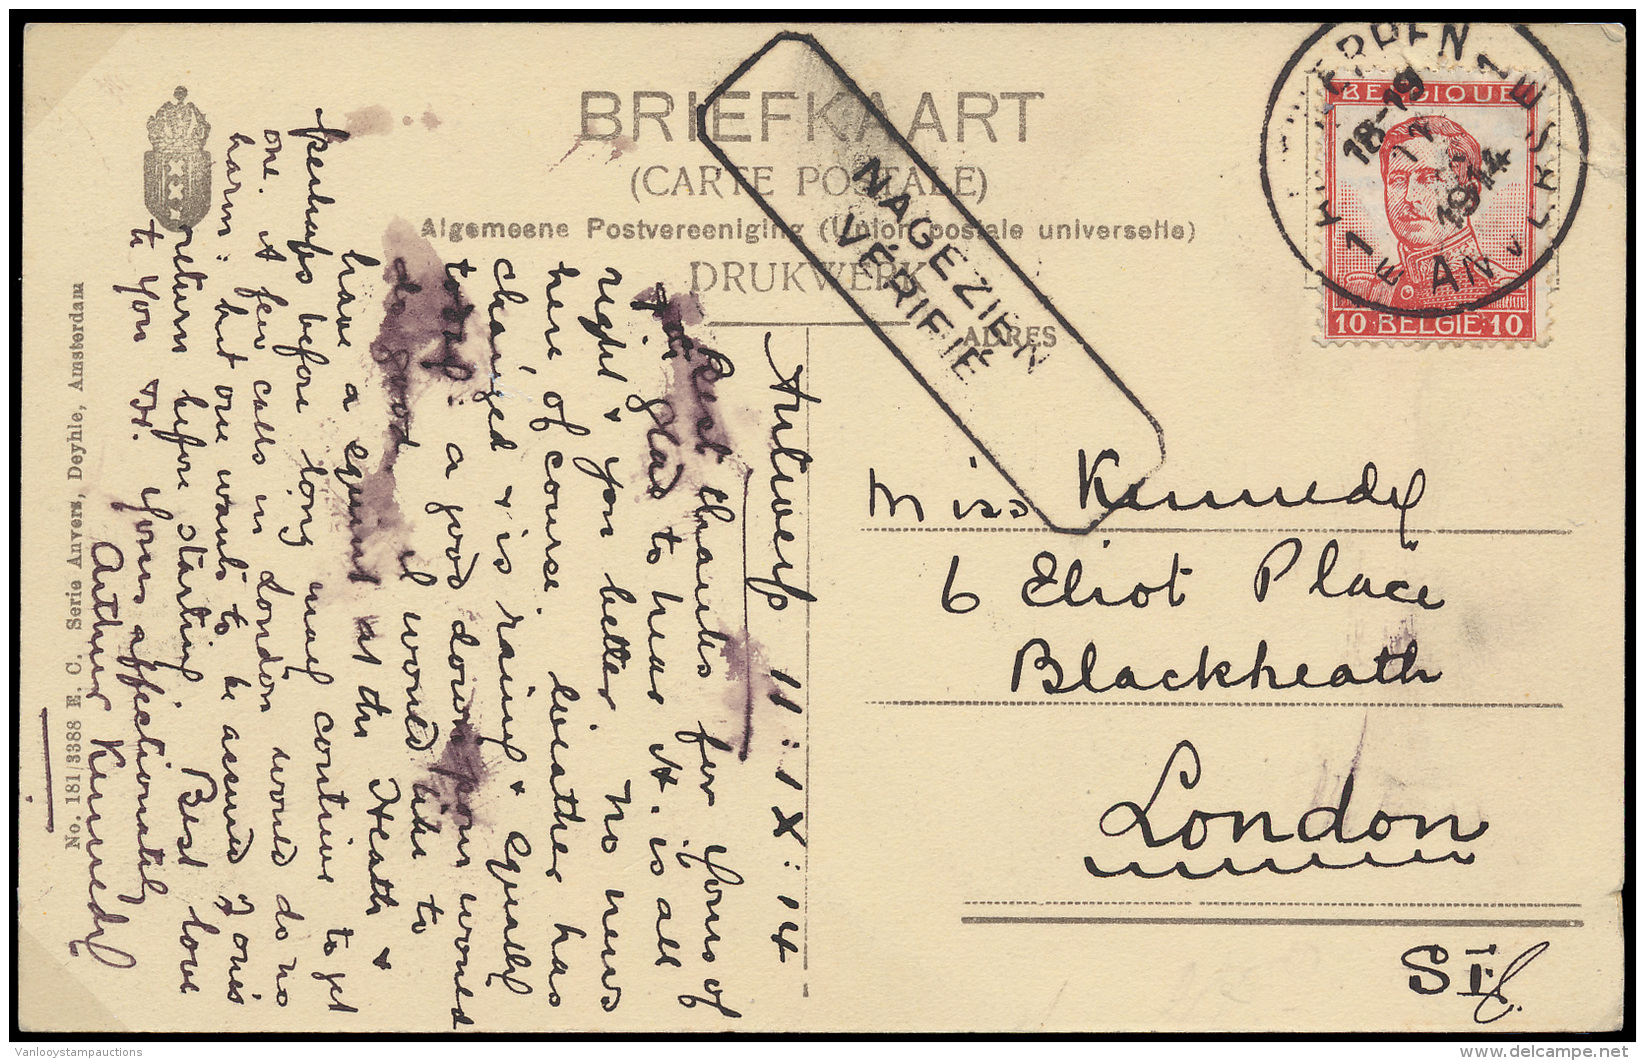 BRIEFKAART
(CARTE POSTALE)
Algemeene Postvereeniging (Union postale universelle)
DRUKWERK
ADRES
NAGEZIEN
VÉRIFIÉ
BELGIQUE
10 BELGIE 10
18-19
1914
1 1
Miss Kennedy
6 Eliot Place
Blackheath
London
Antwerp 11 : IX : 14
Best thanks for yours of
glad to hear it. is all
right & you better. No news
here of course. Weather has
changed & is rainy & equally
today : a good down pour would
do good. I would like to
have a equint at the Heath &
perhaps before long may continue to get
one. A few calls in London would do no
harm : but one wants to be assured of one's
return before starting. Best love
to you . Yours affectionately
Arthur Kennedy
No. 181/3388 E. C. Serie Anvers, Deyhle, Amsterdam
Vanlooystampauctions